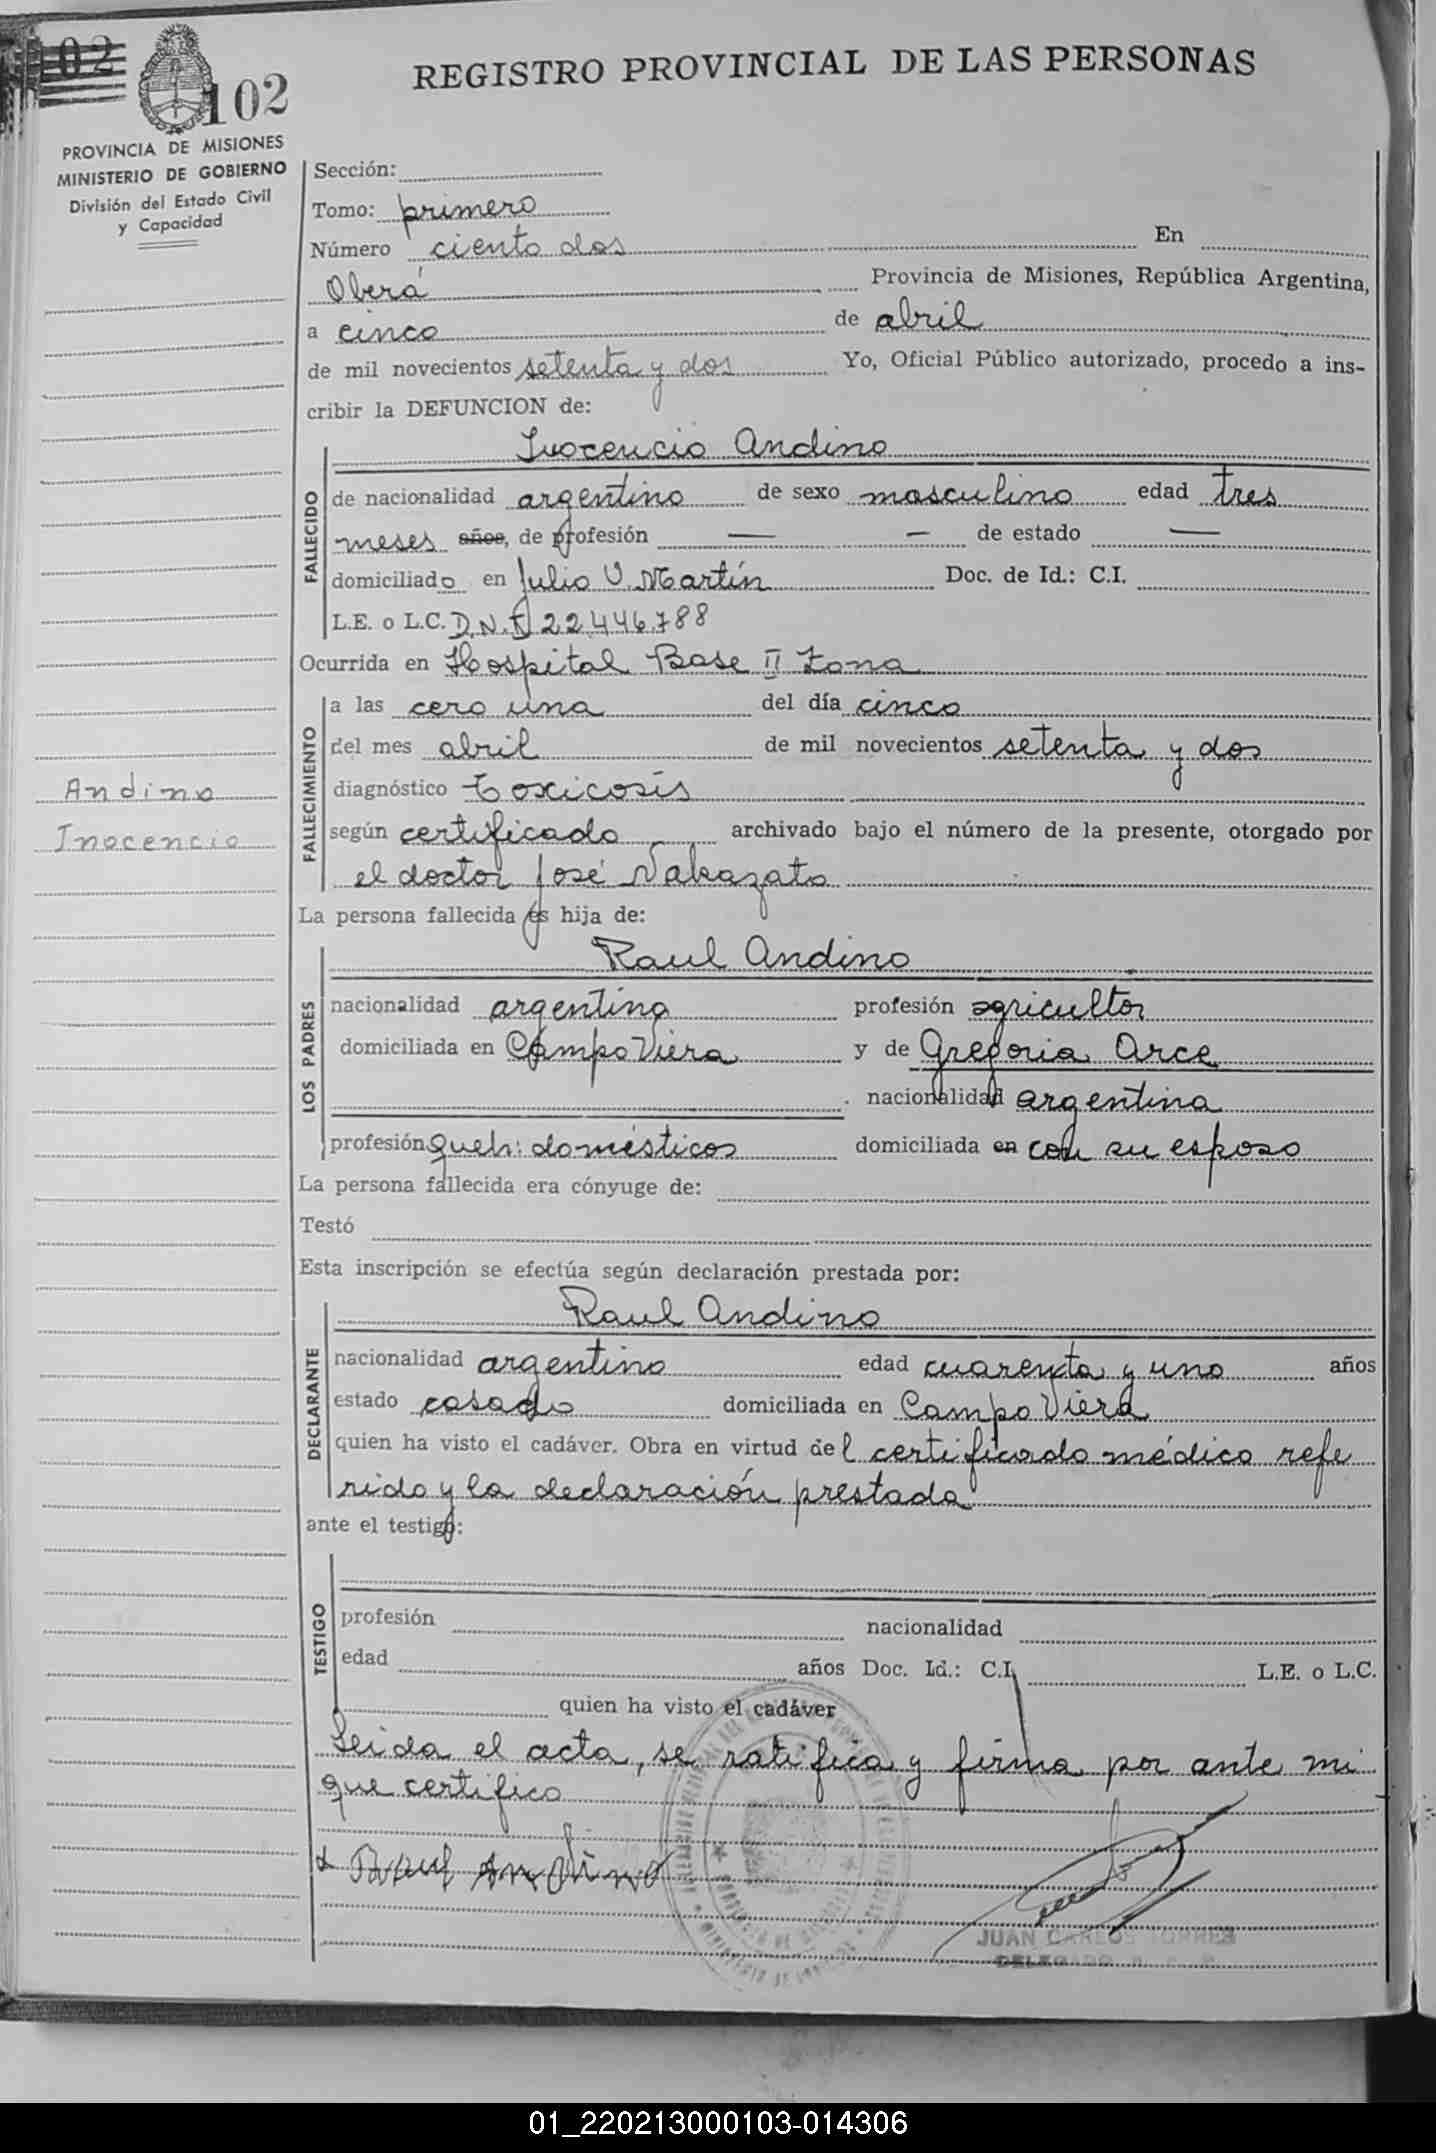 102
102
REGISTRO PROVINCIAL DE LAS PERSONAS
PROVINCIA DE MISIONES
MINISTERIO DE GOBIERNO
División del Estado Civil
y Capacidad
Sección:
Tomo: primero
Número ciento dos En
Oberá Provincia de Misiones, República Argentina,
a cinco de abril
de mil novecientos setenta y dos Yo, Oficial Público autorizado, procedo a ins-
cribir la DEFUNCION de:
Inocencio Andino
FALLECIDO
de nacionalidad argentino de sexo masculino edad tres
meses años, de profesión — — de estado —
domiciliado en Julio U. Martín Doc. de Id.: C.I.
L.E. o L.C. D.N.I 22.446.788
Ocurrida en Hospital Base II Zona
FALLECIMIENTO
a las cero una del día cinco
del mes abril de mil novecientos setenta y dos
diagnóstico toxicosis
Andino
según certificado archivado bajo el número de la presente, otorgado por
Inocencio
el doctor José Nakazato
La persona fallecida es hija de:
Raul Andino
LOS PADRES
nacionalidad argentina profesión agricultor
domiciliada en Campo Viera y de Gregoria Arce
. nacionalidad argentina
profesión queh: domésticos domiciliada en con su esposo
La persona fallecida era cónyuge de:
Testó
Esta inscripción se efectúa según declaración prestada por:
Raul Andino
DECLARANTE
nacionalidad argentino edad cuarenta y uno años
estado casado domiciliada en Campo Viera
quien ha visto el cadáver. Obra en virtud del certificado médico refe
rido y la declaración prestada
ante el testigo:
TESTIGO
profesión nacionalidad
edad años Doc. Id.: C.I. L.E. o L.C.
quien ha visto el cadáver
Leida el acta, se ratifica y firma por ante mi
que certifico
Raul Andino
JUAN CARLOS TORRES
DELEGADO
01_220213000103-014306